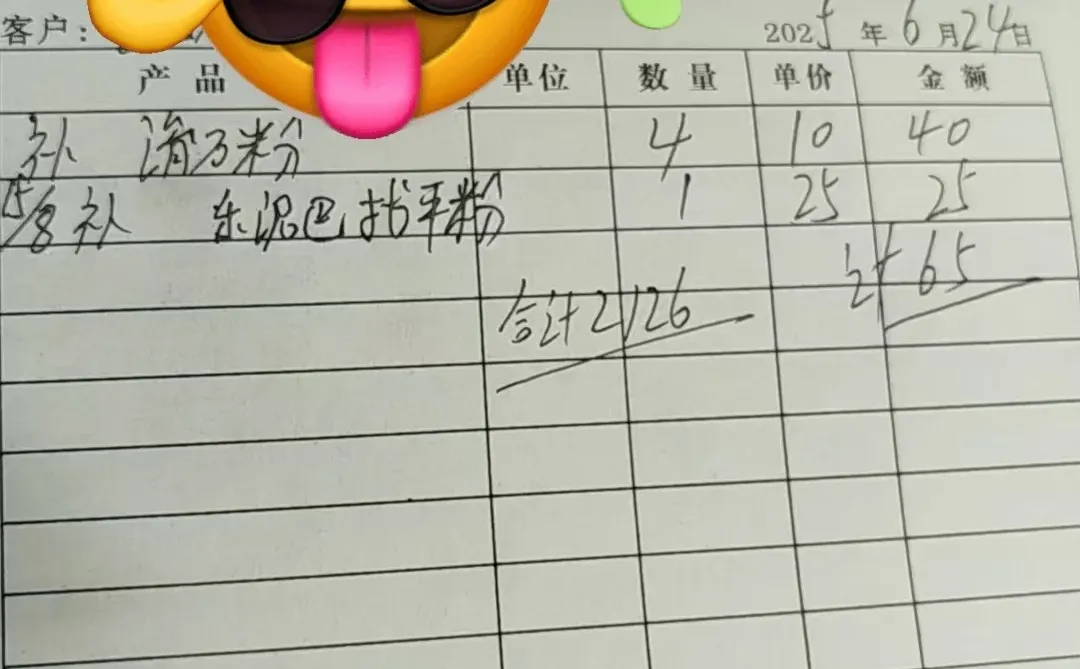 客户: 2025 年 6 月 24 日
产品 单位 数量 单价 金额
补 滑石粉 4 10 40
15/8 补 东泥巴找平粉 1 25 25
计 65
合计 2126